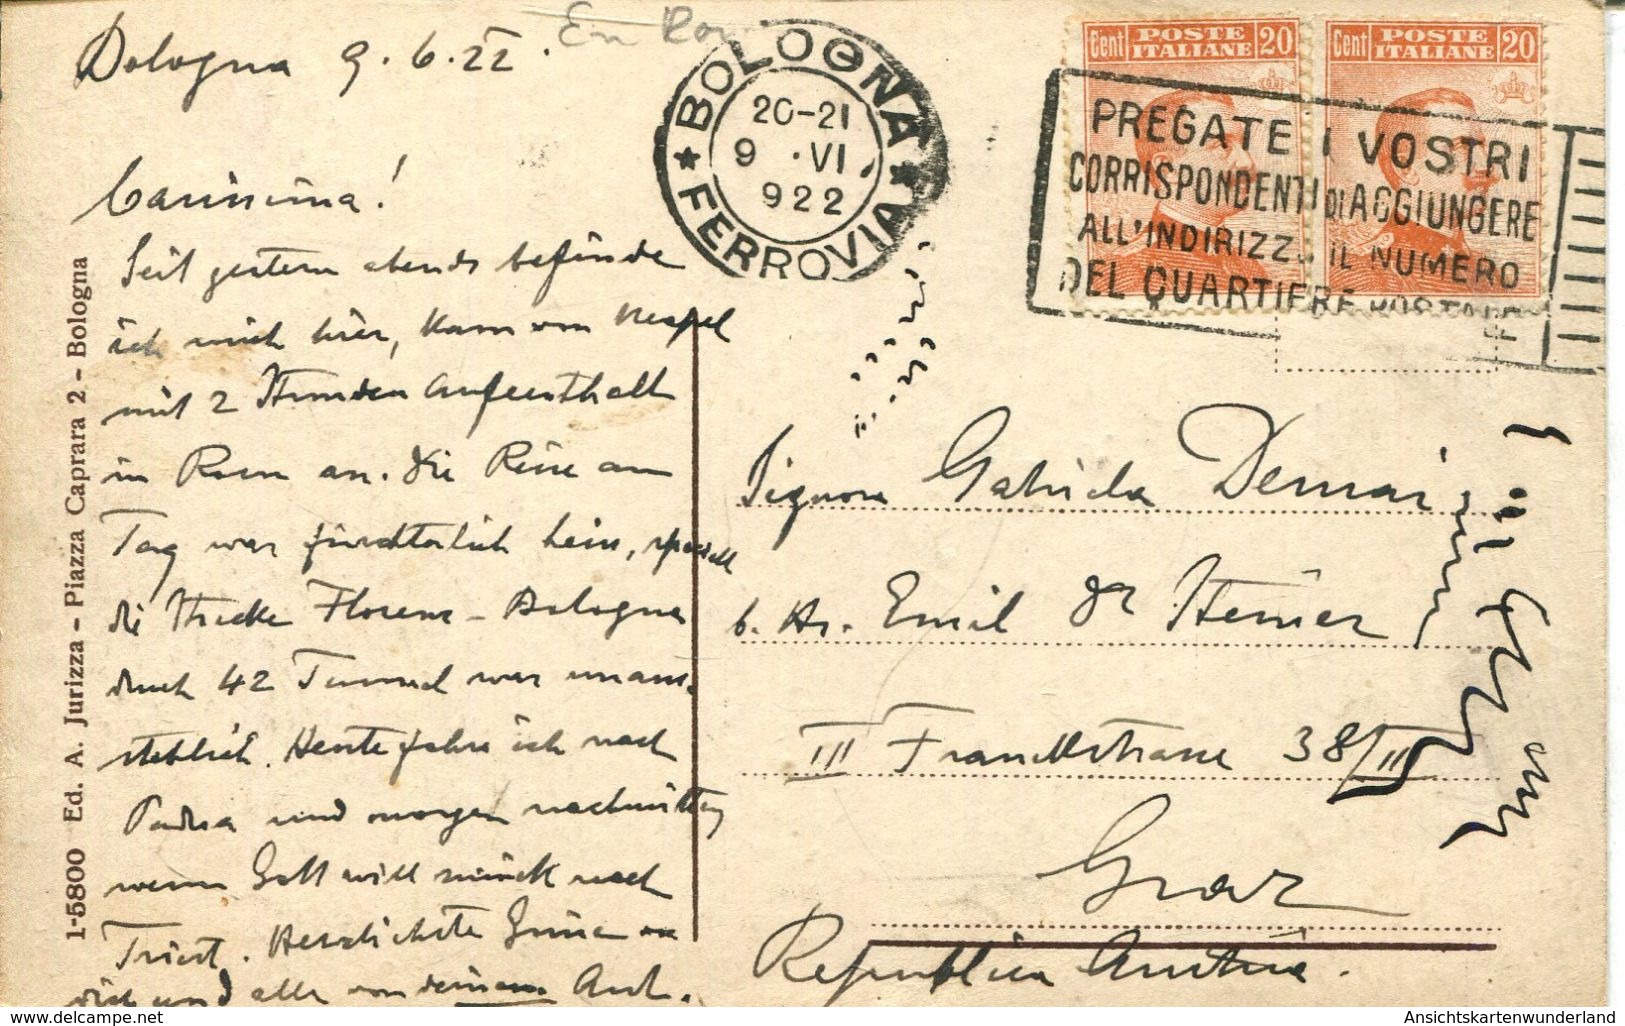 Bologna 9.6.22.
Carissima!
Seit gestern abends befinde
ich mich hier, kam von Neapel
mit 2 Stunden Aufenthalt
in Rom an. Die Reise am
Tag war fürchterlich heiss, speciell
die Strecke Florenz - Bologna
durch 42 Tunnel war unaus-
stehlich. Heute fahre ich nach
Padua und morgen nachmittag
wenn Gott will zurück nach
Triest. Herzlichste Grüsse an
dich und alle von deinem
1-5800 Ed. A. Jurizza - Piazza Caprara 2 - Bologna
BOLOGNA
FERROVIA
20-21
9 · VI
922
Cent POSTE ITALIANE 20
Cent POSTE ITALIANE 20
PREGATE I VOSTRI
CORRISPONDENTI DI AGGIUNGERE
ALL'INDIRIZZ. IL NUMERO
DEL QUARTIERE POSTALE
Signora
b. Hr. Emil Steiner
III 38/III
Graz
Republica Austria.
AnsichtskartenWunderland auf Delcampe.com
AnsichtskartenWunderland